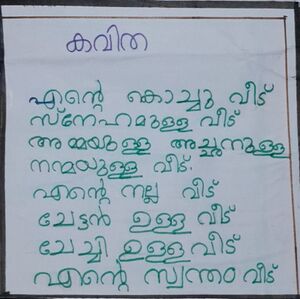 കവിത
എന്റെ കൊച്ചു വീട്
സ്നേഹമുള്ള വീട്
അമ്മയുള്ള അച്ഛനുള്ള
നന്മയുള്ള വീട്.
എന്റെ നല്ല വീട്
ചേട്ടൻ ഉള്ള വീട്
ചേച്ചി ഉള്ള വീട്
എന്റെ സ്വന്തം വീട്